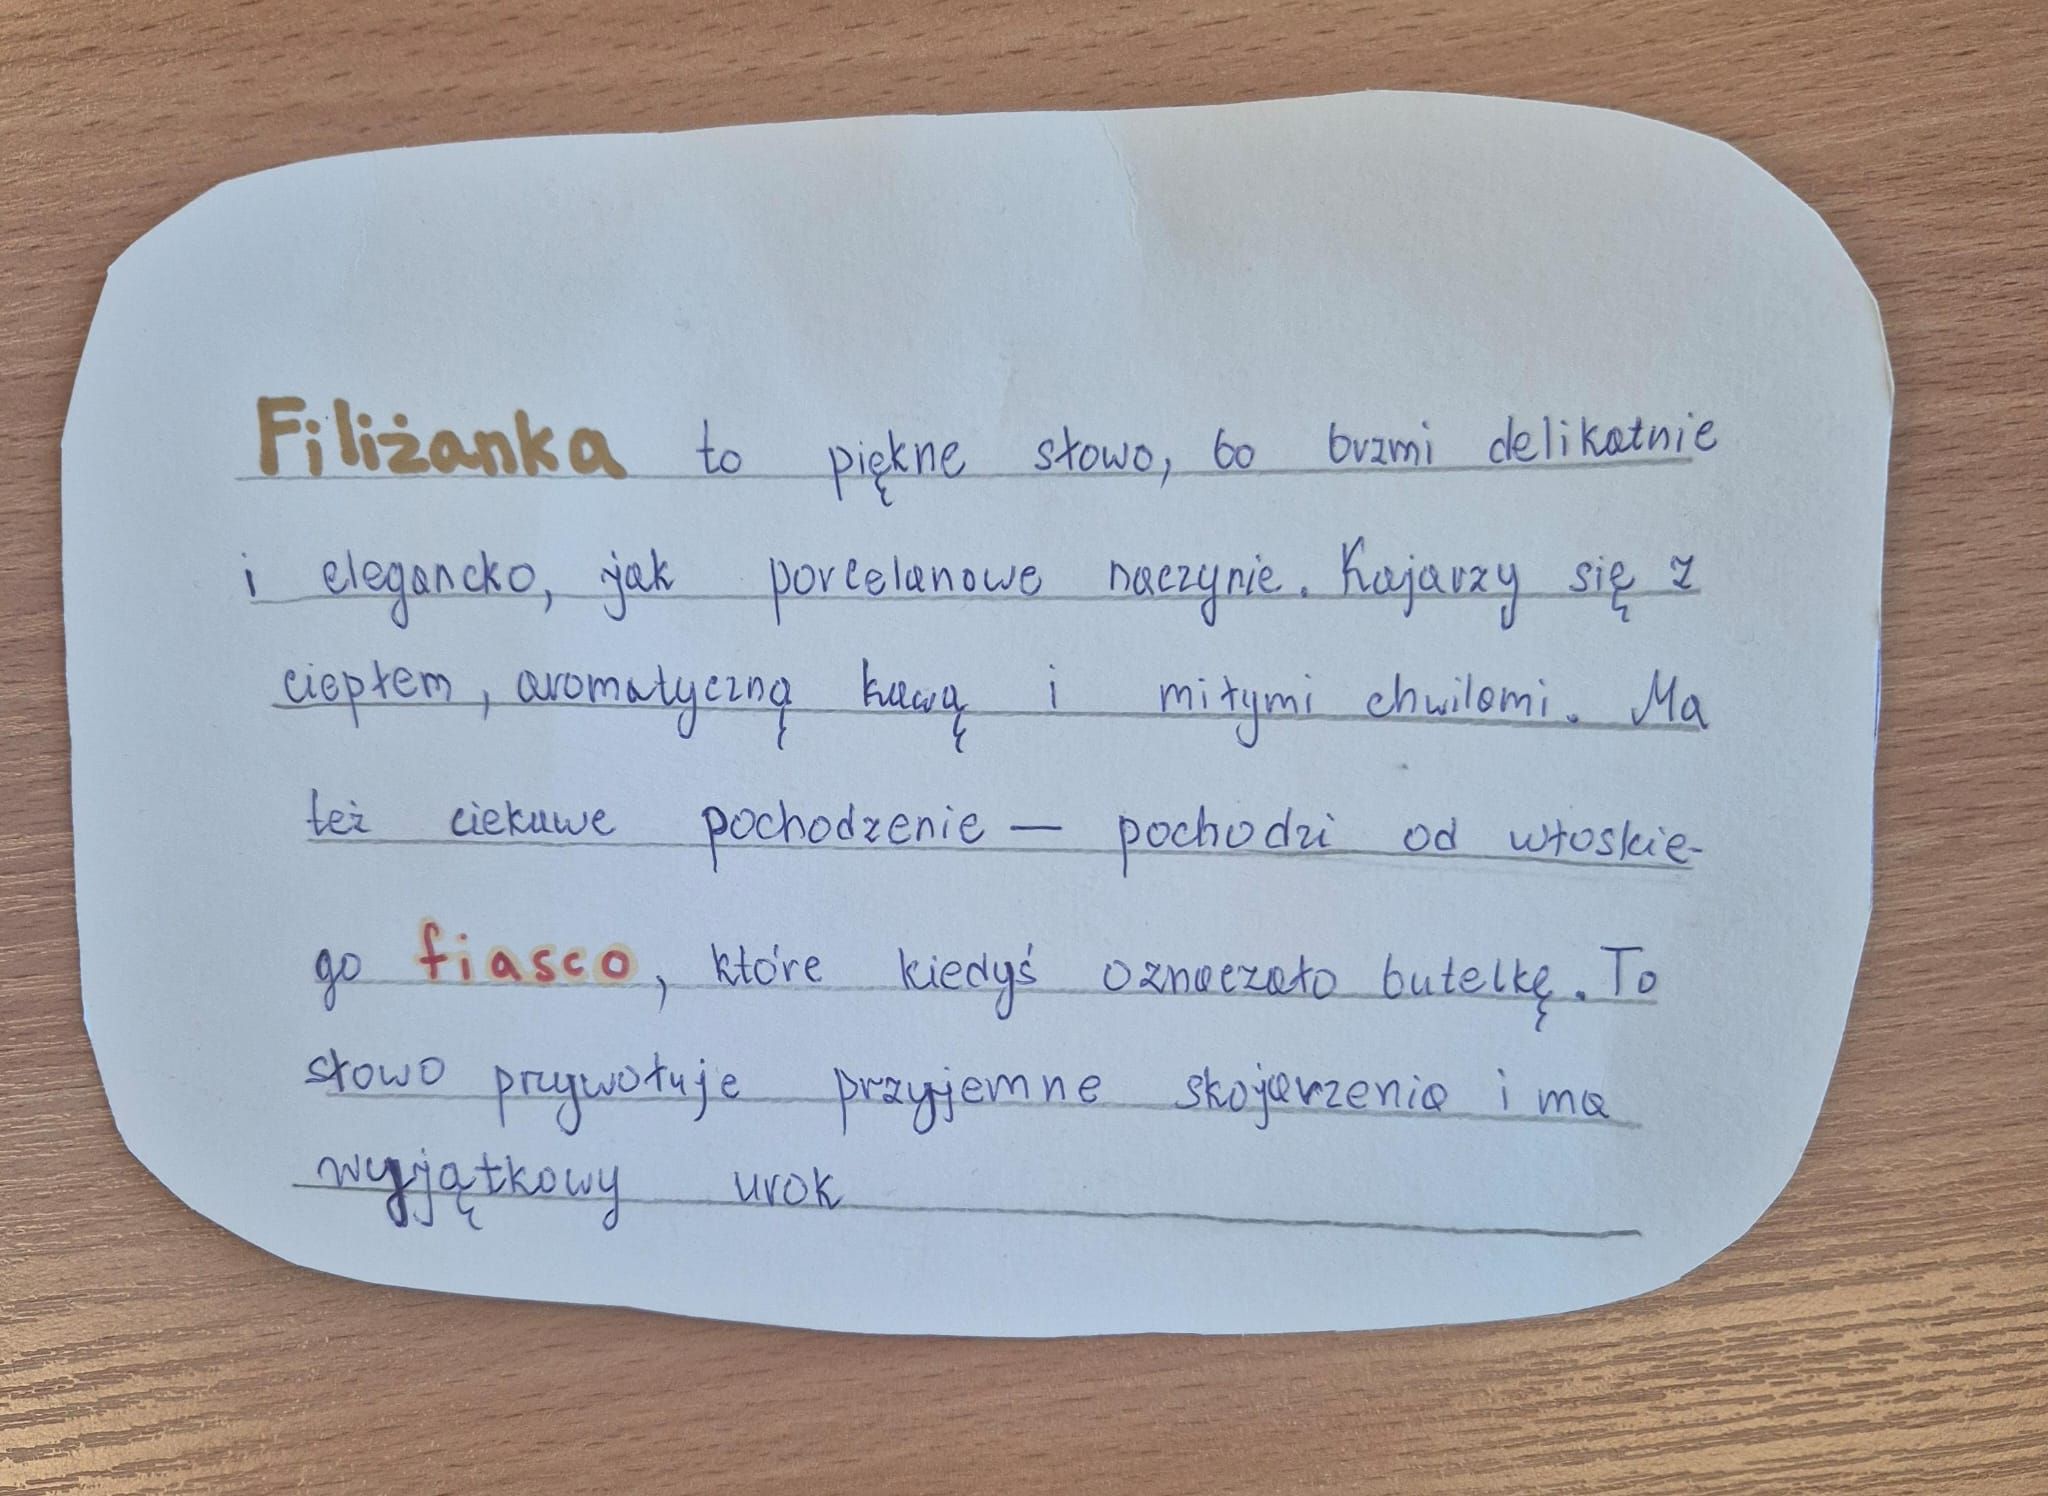 Filiżanka to piękne słowo, bo brzmi delikatnie
i elegancko, jak porcelanowe naczynie. Kojarzy się z
ciepłem, aromatyczną kawą i miłymi chwilami. Ma
też ciekawe pochodzenie – pochodzi od włoskie-
go fiasco, które kiedyś oznaczało butelkę. To
słowo przywołuje przyjemne skojarzenia i ma
wyjątkowy urok